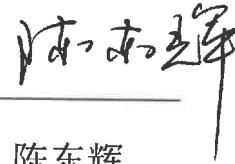 陈东辉
陈东辉